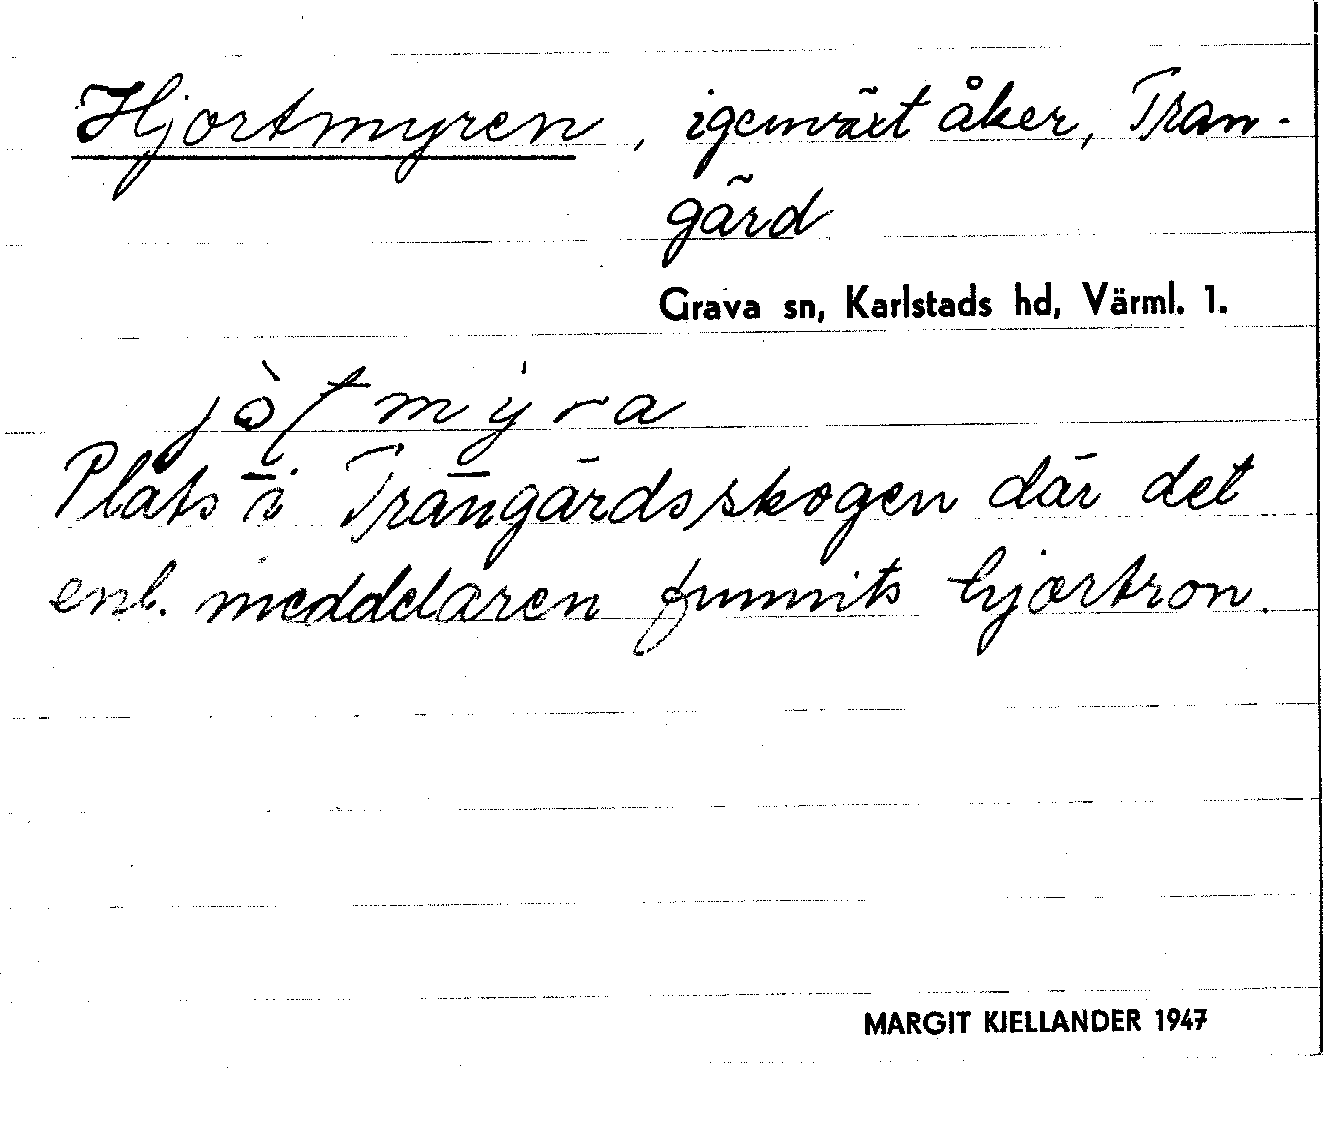 Hjortmyren, igenväxt åker, Tran-
gärd
Grava sn, Karlstads hd, Värml. 1.
Plats i Trangärdsskogen där det
enl. meddelaren funnits hjortron.
MARGIT KJELLANDER 1947